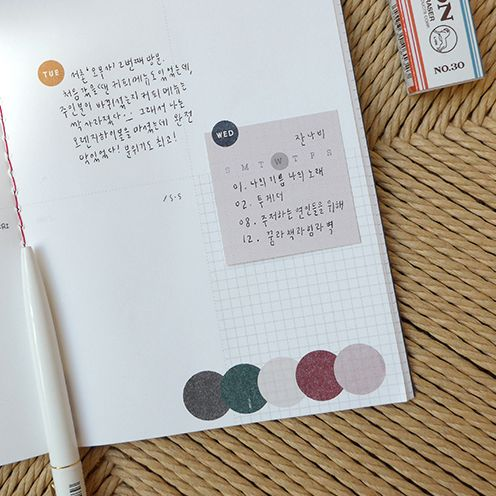 TUE
서촌 오무사! 2번째 방문.
처음 갔을 땐 커피메뉴도 있었는데,
주인분이 바뀌셨는지 커피 메뉴는
싹 사라졌다. 그래서 나는
오렌지하이볼을 마셨는데 완전
맛있었다! 분위기도 최고!
15-5
WED
잔나비
S M T W T F S
01. 나의 기쁨 나의 노래
02. 투게더
08. 주저하는 연인들을 위해
12. 꿈과 책과 힘과 벽
ERASER
NO.30